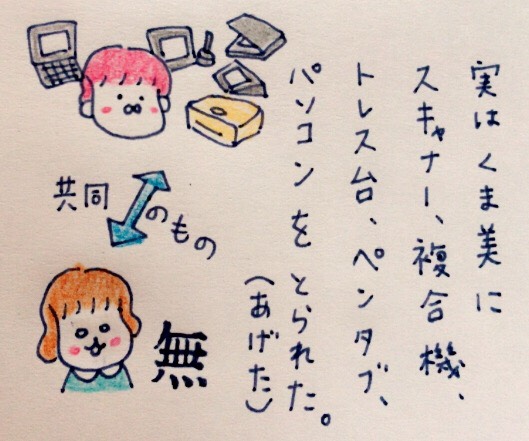 実はくま美に
スキャナー、複合機、
トレス台、ペンタブ、
パソコンをとられた。
(あげた)
共同のもの
無